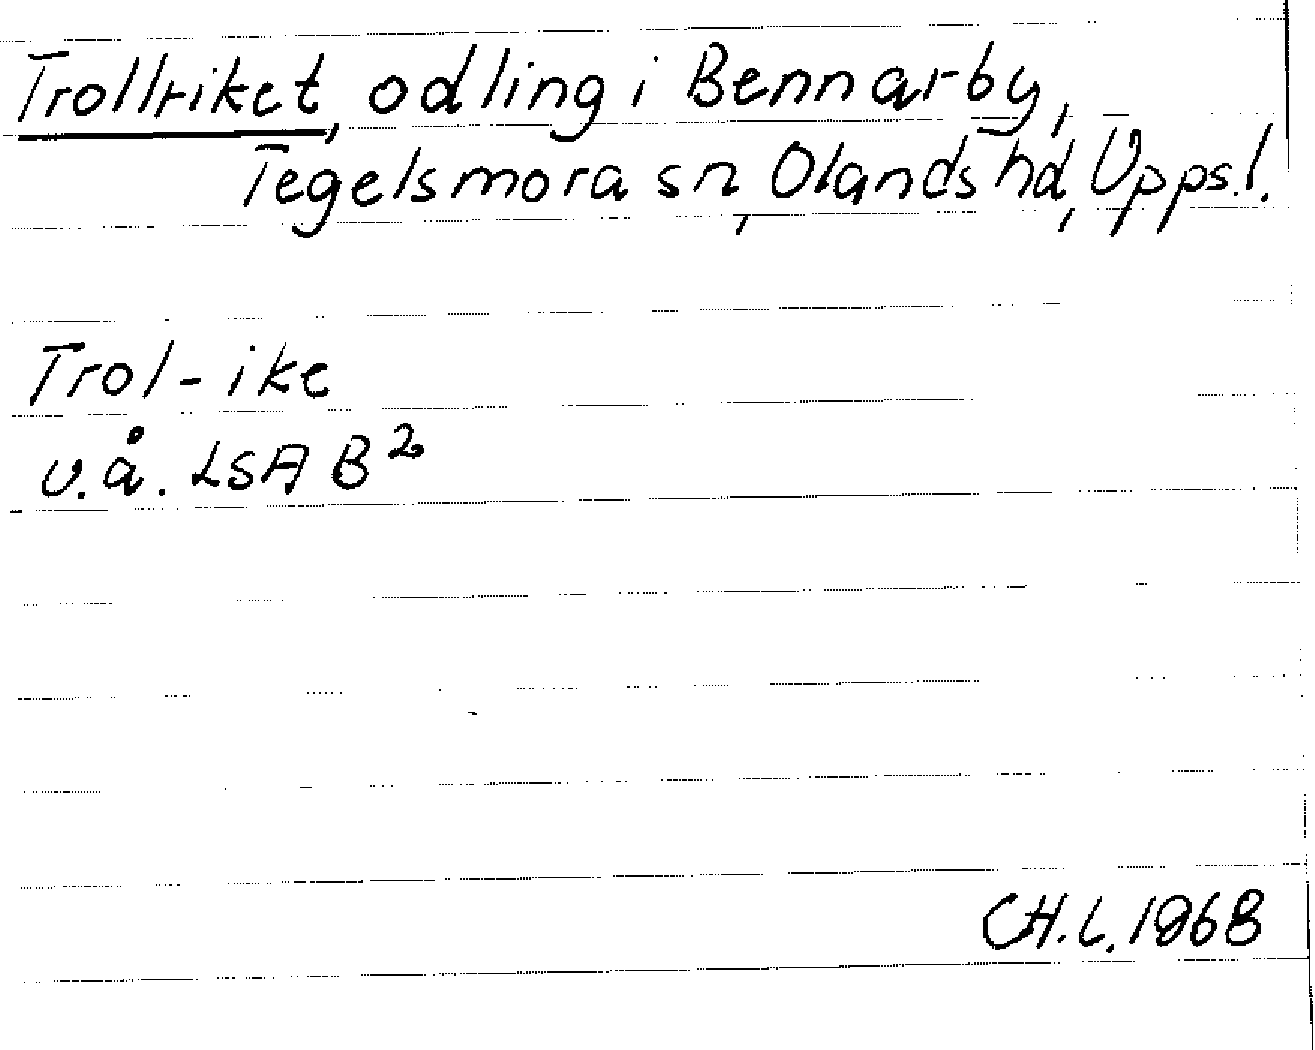 Trollriket, odling i Bennarby,
Tegelsmora sn, Olands hd, Uppsl.
Trol-ike
u.å. LSA B2
CH.L. 1968